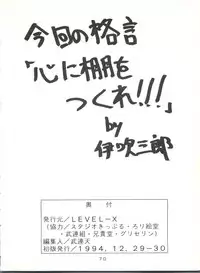 今回の格言
「心に棚を
つくれ!!!」
by
伊吹三郎
奥付
発行元/LEVEL-X
(協力/スタジオきっぷる・ろり絵堂
・武連組・兄貴堂・グリセリン)
編集人/武連天
初版発行/1994.12.29-30
76